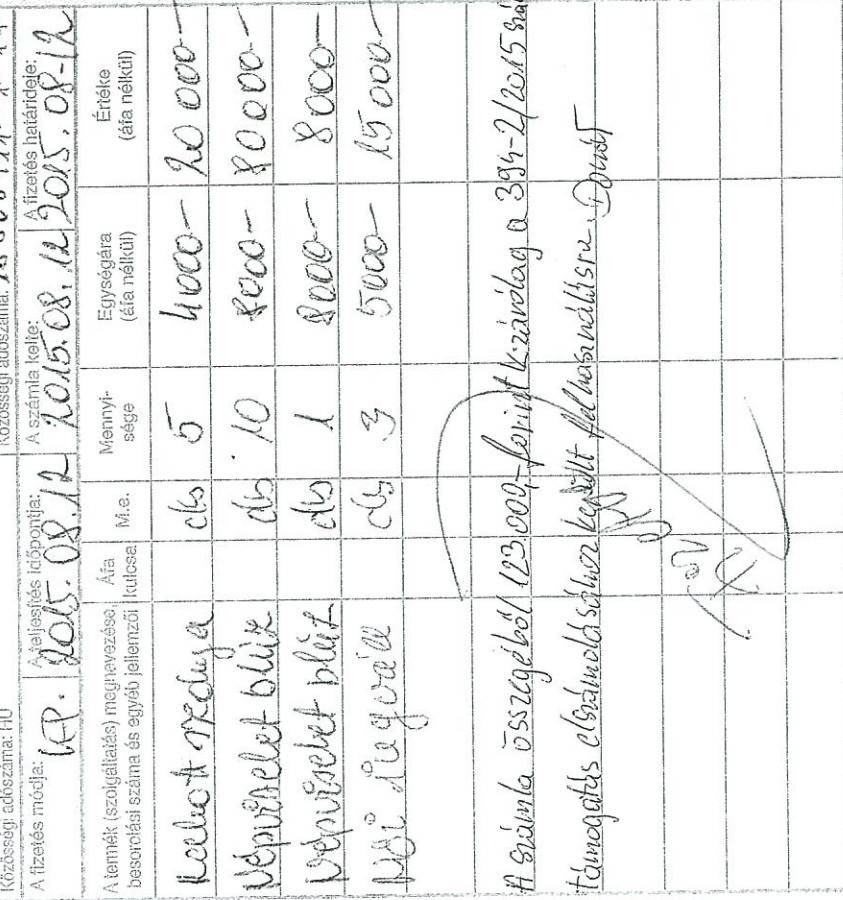 Közösségi adószáma: HU
Közösségi adószáma:
A fizetés módja: KP.
A teljesítés időpontja: 2015. 08. 12
A számla kelte: 2015. 08. 12
A fizetés határideje: 2015. 08-12
A termék (szolgáltatás) megnevezése, besorolási száma és egyéb jellemzői
Áfa kulcsa
M.e.
Mennyi-
sége
Egységára
(áfa nélkül)
Értéke
(áfa nélkül)
db 5 4000- 20 000-
Népviselet blúz db 10 8000- 80 000-
Népviselet blúz db 1 8000- 8000-
Női db 3 5000- 15 000-
A számla összegéből 123.000,- forint kizárólag a 394-2/2015 szá
támogatás elszámolásához került felhasználásra.